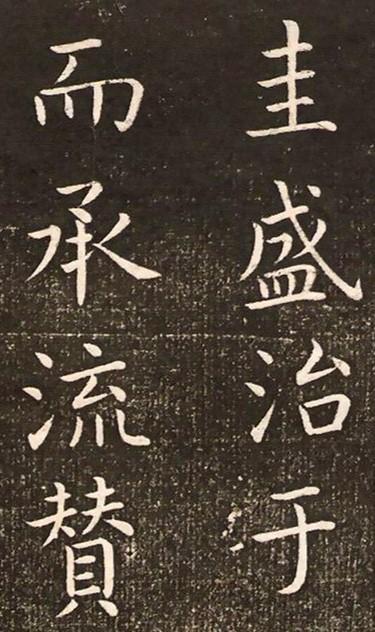 圭盛治于
而承流賛